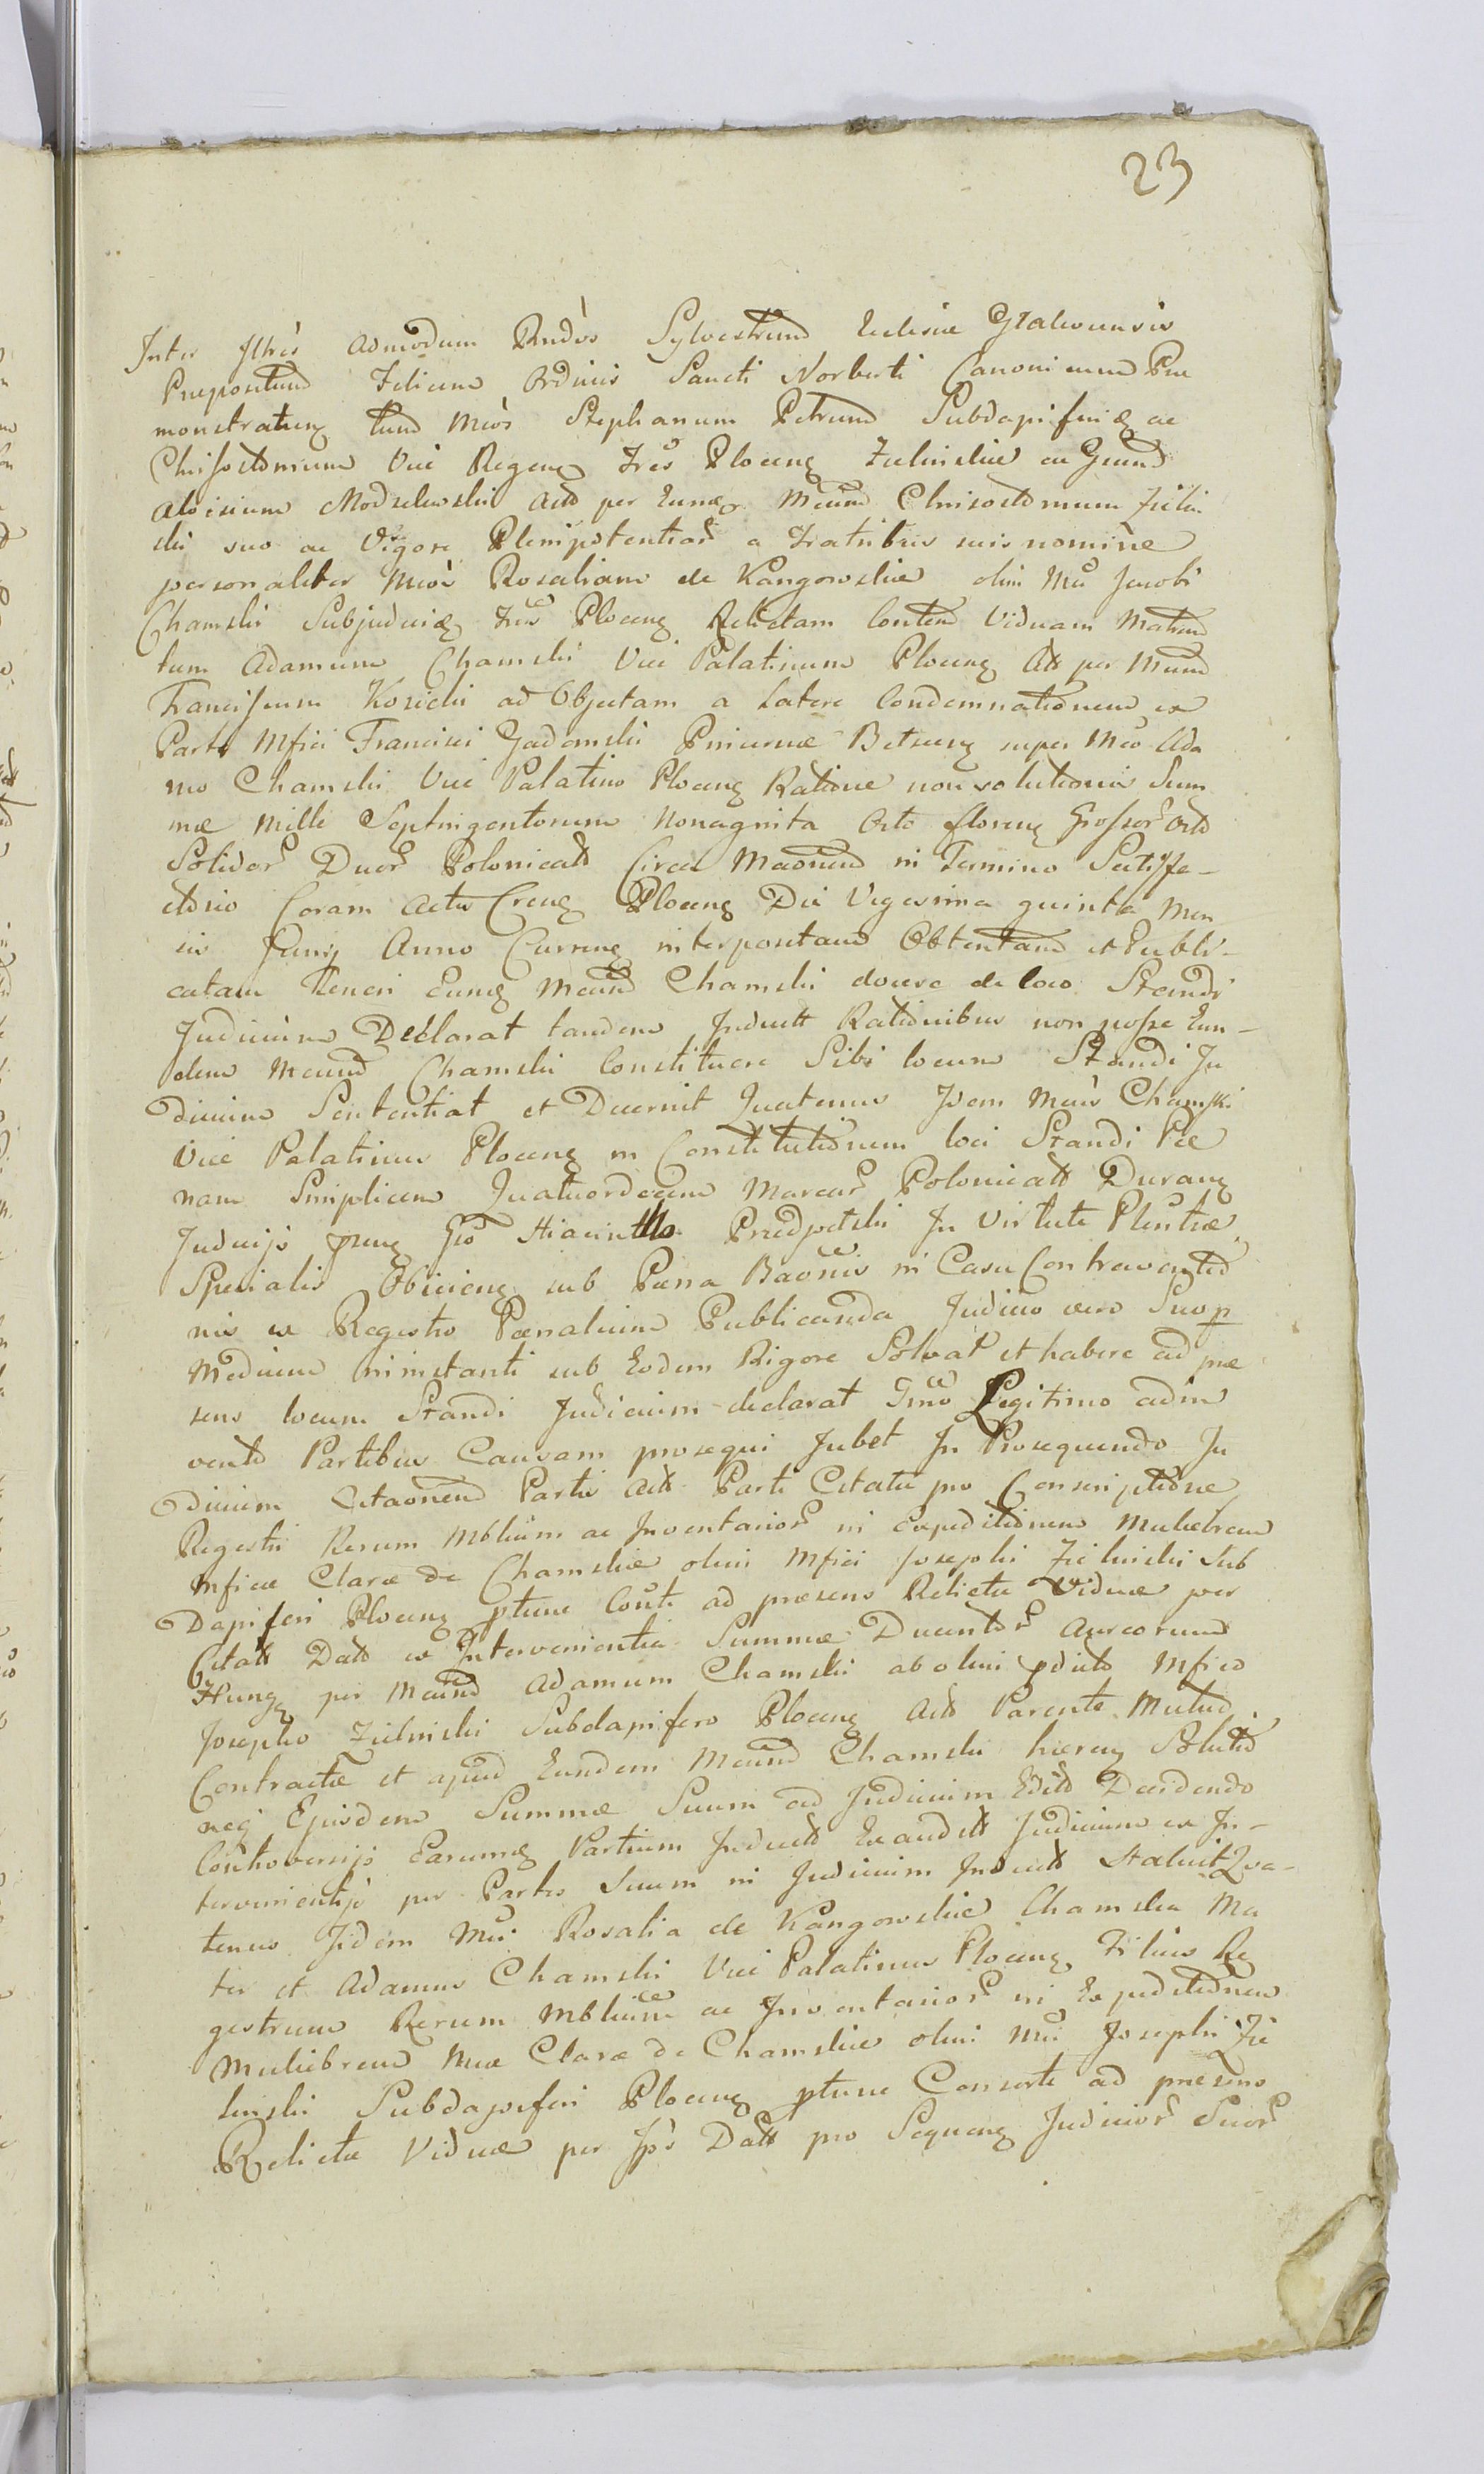 23
Inter Jllres admodum Rndos Sylvestrum Eclesiæ Gralevensis
Præpositum Felicem Ordinis Sancti Norberti Canonicum Præ
monstraten tum Mcos Stephanum Petrum Subdapiferi ac
Chrisostomum Vice Regen Trae Plocen Zielinskie ac Gsum
Aloisium Modzelewski Act per Eunq Mcum Chrisostomum Zielin
ski suo ac Vigore Plenipotentiar a Fratribus suis nomine
personaliter Mcos Rosaliam de Kangowskie olim Mci Jacobi
Chamski Subjudicis Trae Plocen Relictam Conten Viduam Matrem
tum Adamum Chamski Vice Palatinum Plocen Citt per Mcum
Franciscum Kosicki ad Objectam a Latere Condemnationem ex
Parte Mfici Francisci Gadomski Pincernæ super Mco Ada
mo Chamski Vice Palatino Plocen Ratione non solutionis Sum
mæ Mille Septingentorum Nonaginta Octo floren Grossor Octo
Solidor Duor Polonicall Circa in Termino Satisfa-
ctorio Coram Actis Cren Plocen Die Vigesima quinta Men
sis Junij Anno Curren interpositam Obtentam et Publi-
catam Teneri Eunq Mcum Chamski docere de loco Standi
Judicium Declarat tandem Induct Rationibus non posse Eun-
dem Mcum Chamski Constituere Sibi locum Standi Ju
dicium Sententiat et Decernit Quatenus Idem Mcus Chamski
Vice Palatinus Plocen in Constitutionem loci Standi Pæ
nam Simplicem Quatuordecim Marcar Polonicall Duran
Judicijs pren Gso Hiacintho Przedpelski In Virtute Plentiæ
Specialis Obicien sub Pæna Baonis in Casu Contraventio
nis ex Registro Pænalium Publicanda Judicio vero Suo p
Medium in instanti sub Eodem Rigore Solvat et habere ad præ
sens locum Standi Judicium declarat Gmo Legitimo adin
vento Partibus Causam prosequi Jubet In Prosequendo Ju
dicium Citaonem Partis Act Parti Citatæ pro Conscriptione
Regestri Rerum Mblium ac Inventarior in Expeditionem Muliebrem
Mficæ Claræ de Chamskie olim Mfici Josephi Zielinski Sub
Dapiferi Plocen ptunc Conti ad præsens Relictæ Viduæ per
Citatt Datt ex Intervenientia Summæ Ducentor Aureorum
Hung per Mcum Adamum Chamski ab olim pdicto Mfico
Josepho Zielinski Subdapifero Plocen Act Parente Mutuo
Contractæ et apud Eundem Mcum Chamski hæren Solutio
neq Ejusdem Summæ Suum ad Judicium Edict Decidendo
Controversijs Earumq Partium Induct Exaudit Judicium ex In-
tervenientijs per Partes Suum in Judicium Induct Statuit Qua-
tenus Iidem Mci Rosalia de Kangowskie Chamska Ma
ter et Adamus Chamski Vice Palatinus Plocen Filius Re
gestrum Rerum Mblium ac Inventarior in Expeditionem
Muliebrem Mcæ Claræ de Chamskie olim Mci Josephi Zie
linski Subdapiferi Plocen ptunc Consorti ad præsens
Relictæ Viduæ per Ipos Datt pro Sequen Judicior Suor